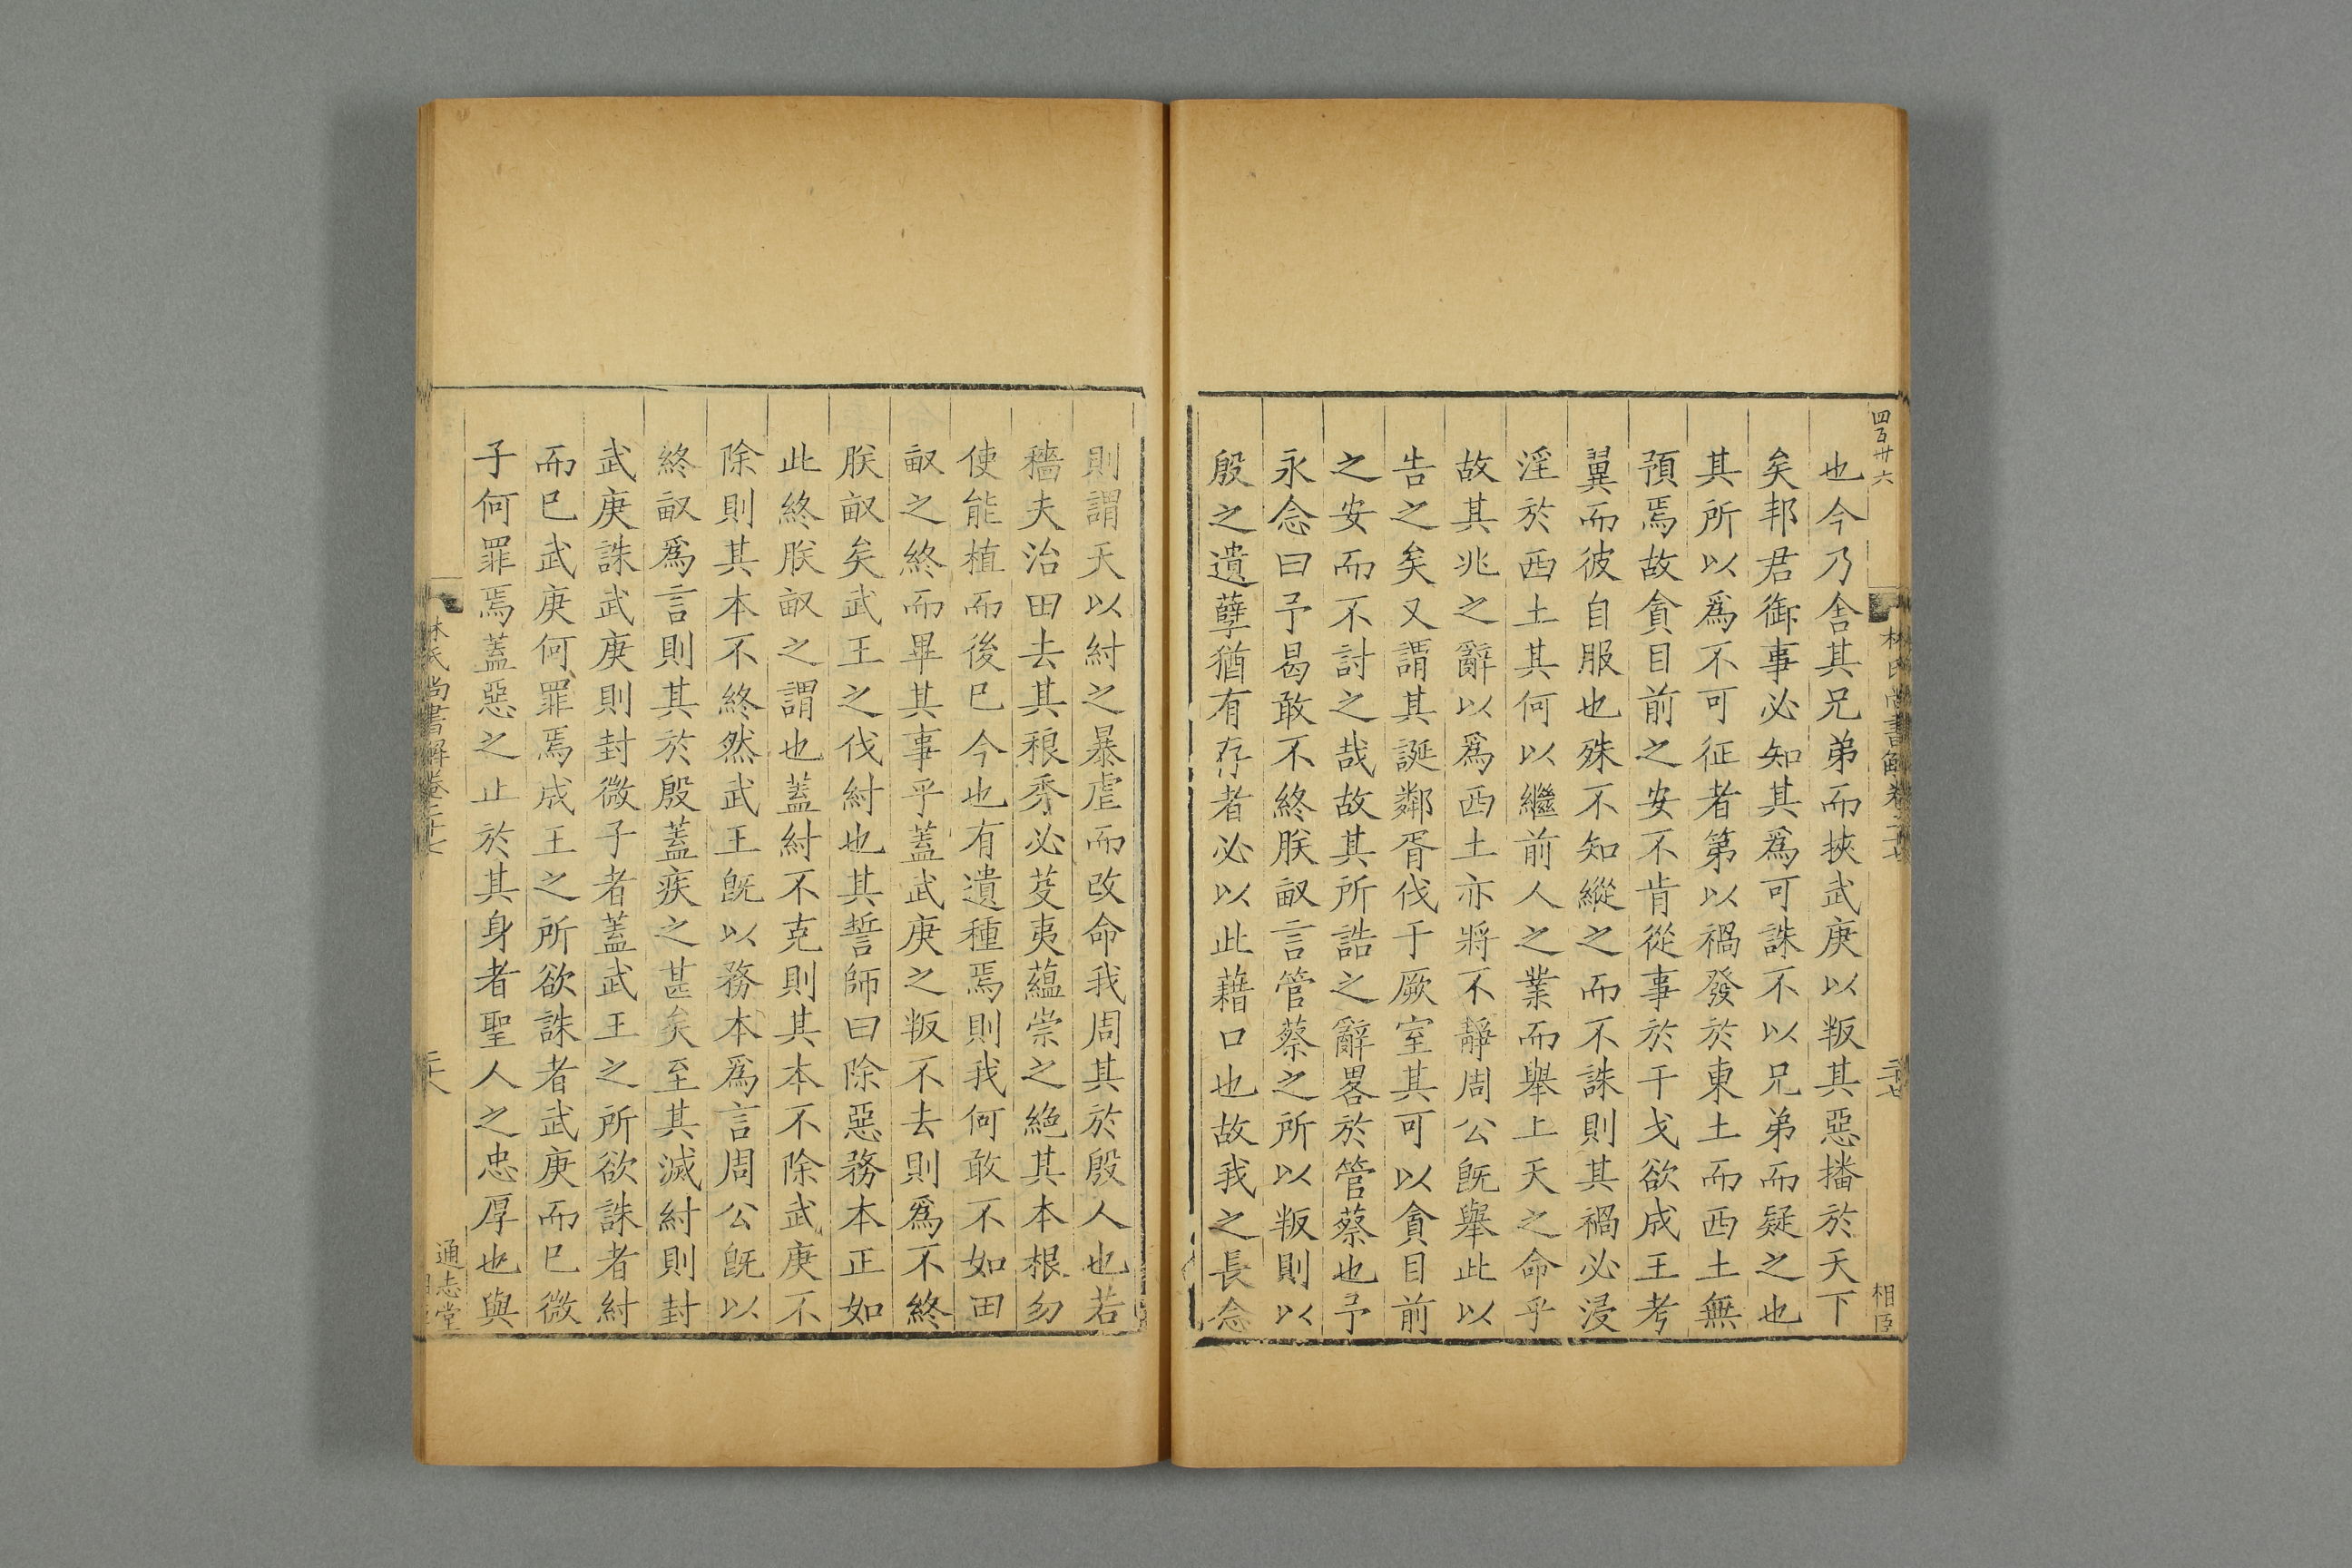 四百卅六
林氏尚書解卷二十七
二十七
相臣
也今乃舎其兄弟而挾武庚以叛其惡播於天下
矣邦君御事必知其爲可誅不以兄弟而疑之也
其所以爲不可征者第以禍發於東土而西土無
預焉故貪目前之安不肯從事於干戈欲成王考
翼而彼自服也殊不知縱之而不誅則其禍必浸
淫於西土其何以繼前人之業而舉上天之命乎
故其兆之辭以爲西土亦將不靜周公旣舉此以
告之矣又謂其誕鄰胥伐于厥室其可以貪目前
之安而不討之哉故其所誥之辭畧於管蔡也予
永念曰予曷敢不終朕畝言管蔡之所以叛則以
殷之遺孽猶有存者必以此藉口也故我之長念
則謂天以紂之暴虐而改命我周其於殷人也若
穡夫治田去其稂莠必芟夷蘊崇之絶其本根勿
使能植而後已今也有遺種焉則我何敢不如田
畝之終而畢其事乎蓋武庚之叛不去則爲不終
朕畝矣武王之伐紂也其誓師曰除惡務本正如
此終朕畝之謂也蓋紂不克則其本不除武庚不
除則其本不終然武王旣以務本爲言周公旣以
終畝爲言則其於殷蓋疾之甚矣至其滅紂則封
武庚誅武庚則封微子者蓋武王之所欲誅者紂
而已武庚何罪焉成王之所欲誅者武庚而已微
子何罪焉蓋惡之止於其身者聖人之忠厚也與
林氏尚書解卷二十七
二十八
通志堂